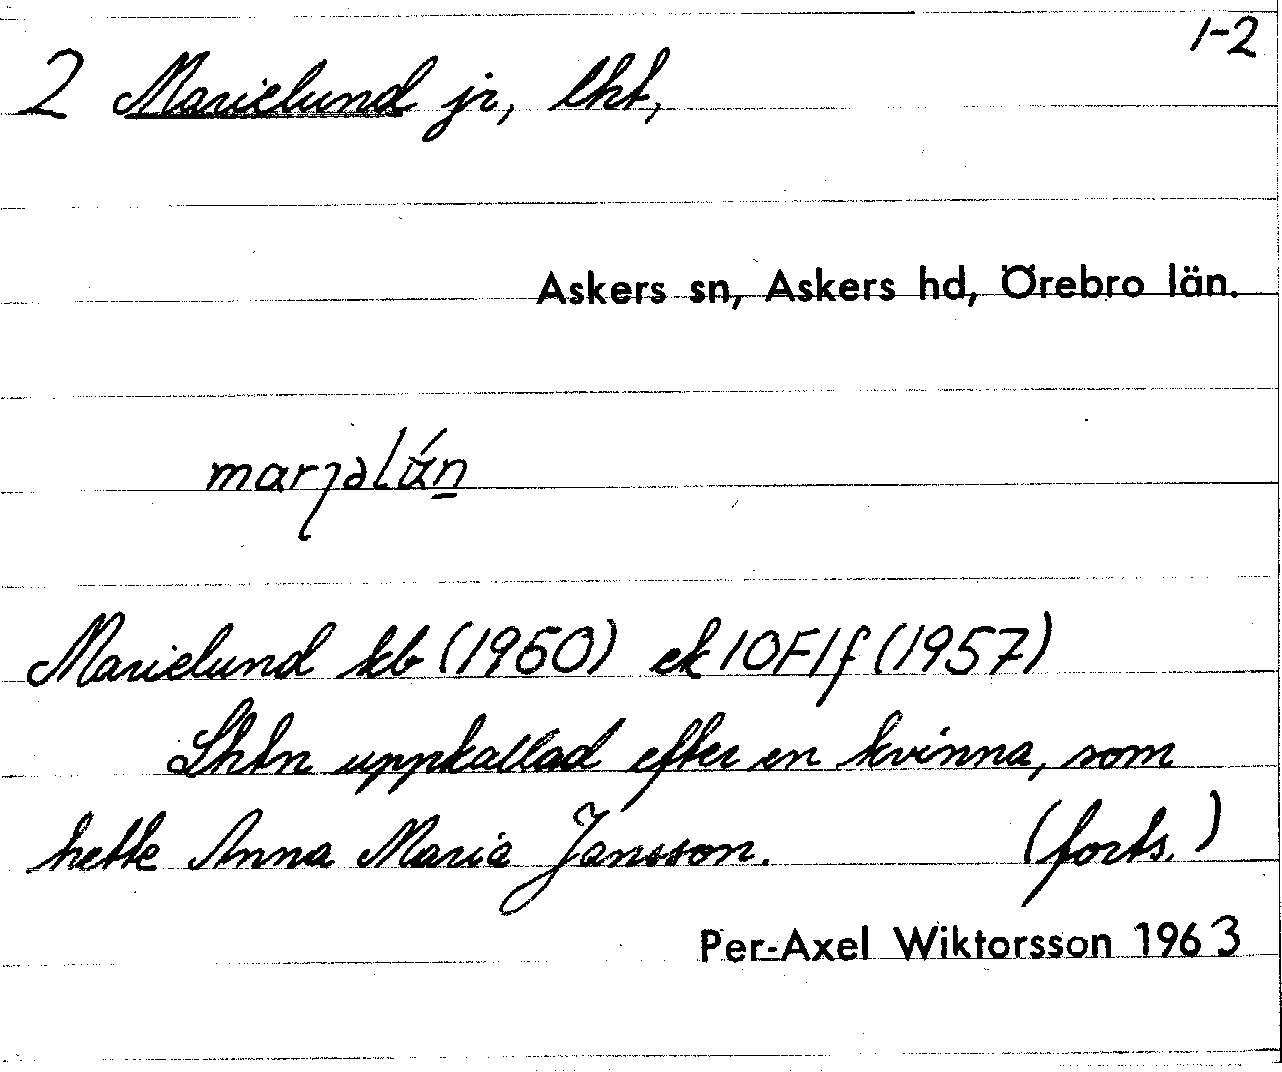 1-2
2 Marielund jr, lht,
Askers sn, Askers hd, Örebro län.
marȷəlún
Marielund kb (1950) ek 10F1f (1957)
Lhtn uppkallad efter en kvinna, som
hette Anna Maria Jansson. (forts.)
Per-Axel Wiktorsson 1963